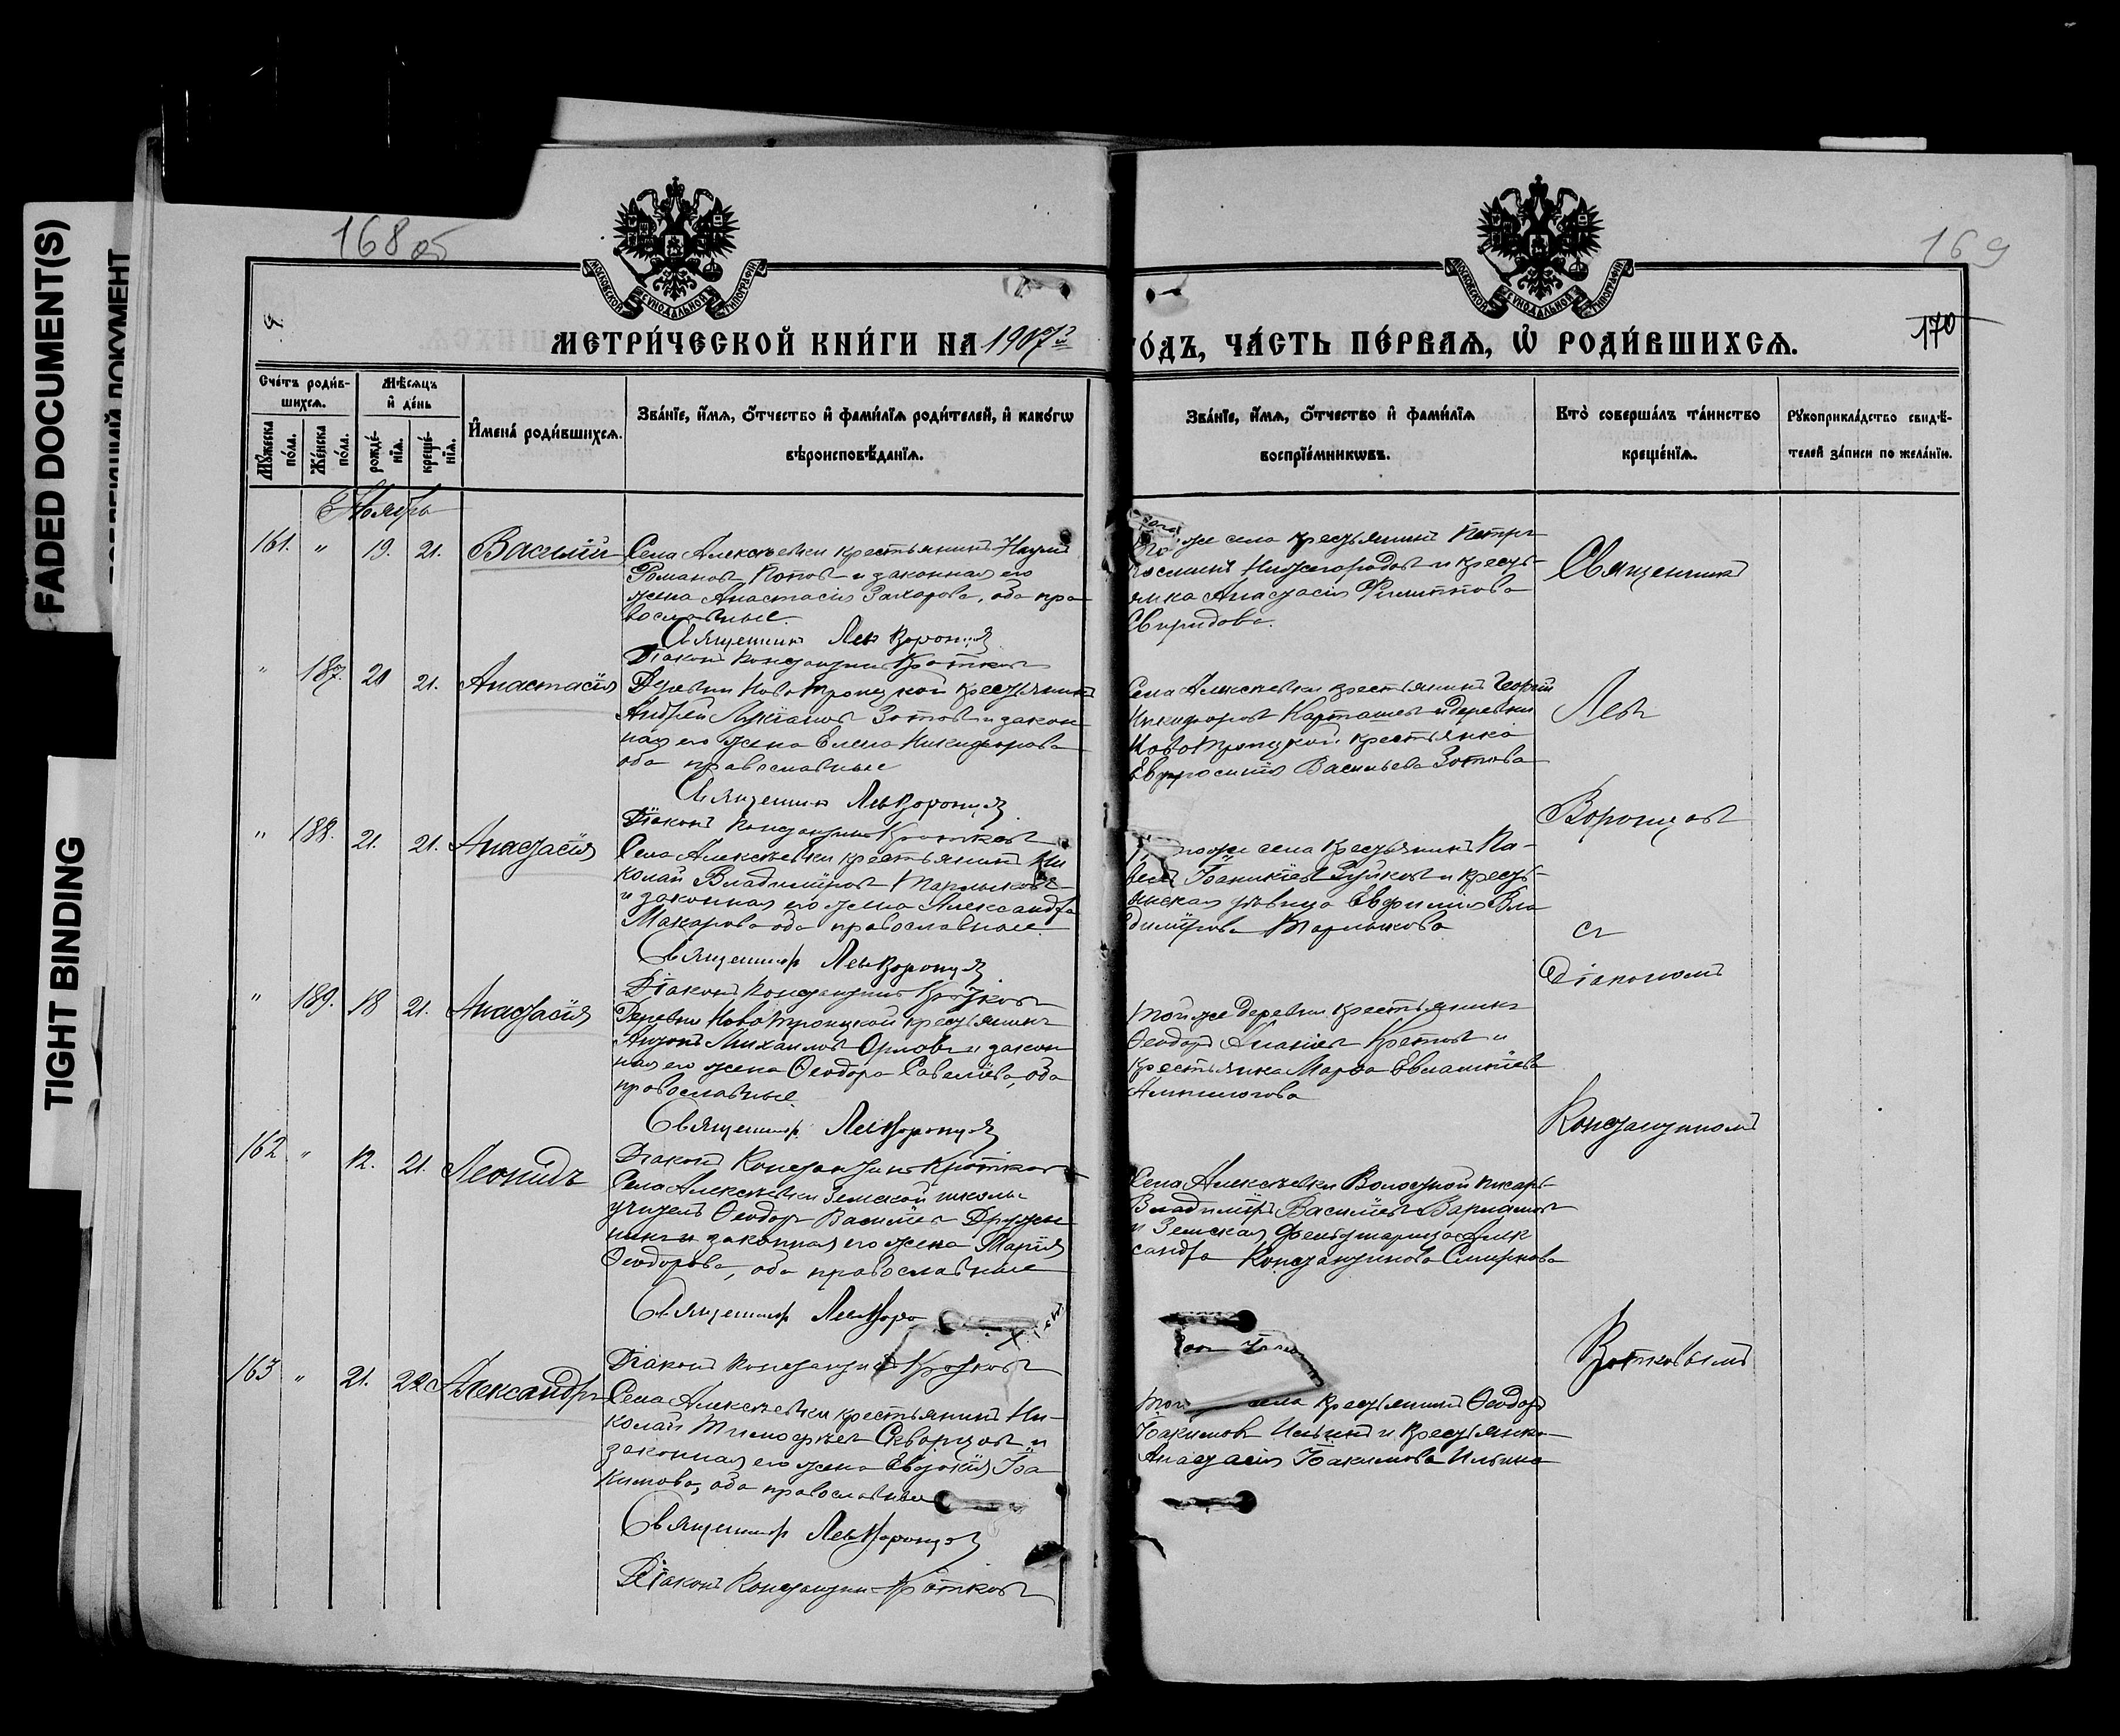 FADED DOCUMENT(S)
TIGHT BINDING
168 об
169
170
МОСКОВСКОЙ СѴНОДАЛЬНОЙ ТИПОГРАФІИ
МОСКОВСКОЙ СѴНОДАЛЬНОЙ ТИПОГРАФІИ
МЕТРИ́ЧЕСКОЙ КНИ́ГИ НА 1907й ГО́ДЪ, ЧА́СТЬ ПЕ́РВАѦ, Ѡ҆ РОДИ́ВШИХСѦ.
Сче́тъ роди́в-
шихсѧ.
Мѣ́сѧцъ
и҆ де́нь
Мꙋ́жеска
по́ла.
Же́нска
по́ла.
рожде́-
нїѧ.
креще́-
нїѧ.
И҆мена̀ роди́вшихсѧ.
Зва́нїе, и҆́мѧ, ѻ҆́тчество и҆ фами́лїѧ роди́телей, и҆ како́гѡ
вѣроисповѣ́данїѧ.
Зва́нїе, и҆́мѧ, ѻ҆́тчество и҆ фами́лїѧ
воспрїе́мникѡвъ.
Кто̀ соверша́лъ та́инство
креще́нїѧ.
Рꙋкоприкла́дство свидѣ́-
телей за́писи по жела́нїю.
Ноябрь
161. " 19. 21. Василій
Села Алексѣевки крестьянинъ Наумъ
Романовъ Поповъ и законная его
жена Анастасія Захарова, оба пра
вославные.
Священникъ Левъ Воронцов
Діаконъ Константинъ Кротковъ
же села крестьянинъ Петръ
Нижегородовъ и кресть-
янка Анастасія Филиппова
Свиридова.
Священникъ
" 187. 20 21. Анастасія
Деревни Новотроицкой крестьянинъ
Андрей Лукіановъ Зотовъ и закон
ная его жена Елена Никифорова
оба православные
Священник Лев Воронцов
Діаконъ Константинъ Кротковъ
Села Алексѣевки крестьянинъ Георгій
Никифоровъ Карташевъ и деревни
Новотроицкой крестьянка
Евфросинія Васильева Зотова
Левъ
Воронцовъ
" 188. 21. 21. Анастасія
Села Алексѣевки крестьянинъ Ни
колай Владиміровъ Тарлыковъ
и законная его жена Александра
Макарова оба православные
Священник Лев Воронцов
Діаконъ Константинъ Кротковъ
тогоже села крестьянинъ Па-
велъ Іоанникіевъ Зуйковъ и кресть-
янская дѣвица Евфимія Вла
димірова Тарлыкова
съ
Діакономъ
" 189. 18 21. Анастасія
Деревни Новотроицкой крестьянинъ
Антонъ Михаиловъ Орловъ и закон
ная его жена Ѳеодора Савеліева, оба
православные.
Священник Лев Воронцов
Діаконъ Константинъ Кротковъ
Той же деревни крестьянинъ
Ѳеодоръ Ананіевъ Кретовъ и
крестьянка Марѳа Евлампіева
Константиномъ
162 " 12. 21. Леонидъ
Села Алексѣевки Земской школы
учитель Ѳеодоръ Васильевъ Дружи
нинъ и законная его жена Марія
Ѳеодорова, оба православные
Священник Лев Воро
Діаконъ Константинъ Кротковъ
Села Алексѣевки Волостной писарь
Владиміръ Васильевъ Варламовъ
и Земская фельдшерица Алек
сандра Константинова Смирнова
Кротковымъ
163 " 21. 22 Александръ
Села Алексѣевки крестьянинъ Ни-
колай Тимоѳеевъ Скворцовъ и
законная его жена Евдокія Іоа
кимова, оба православные
Священник Лев Воронцов
Діаконъ Константинъ Кротковъ
села крестьянинъ Ѳеодоръ
Іоакимовъ Ильинъ и крестьянка
Анастасія Іоакимова Ильина